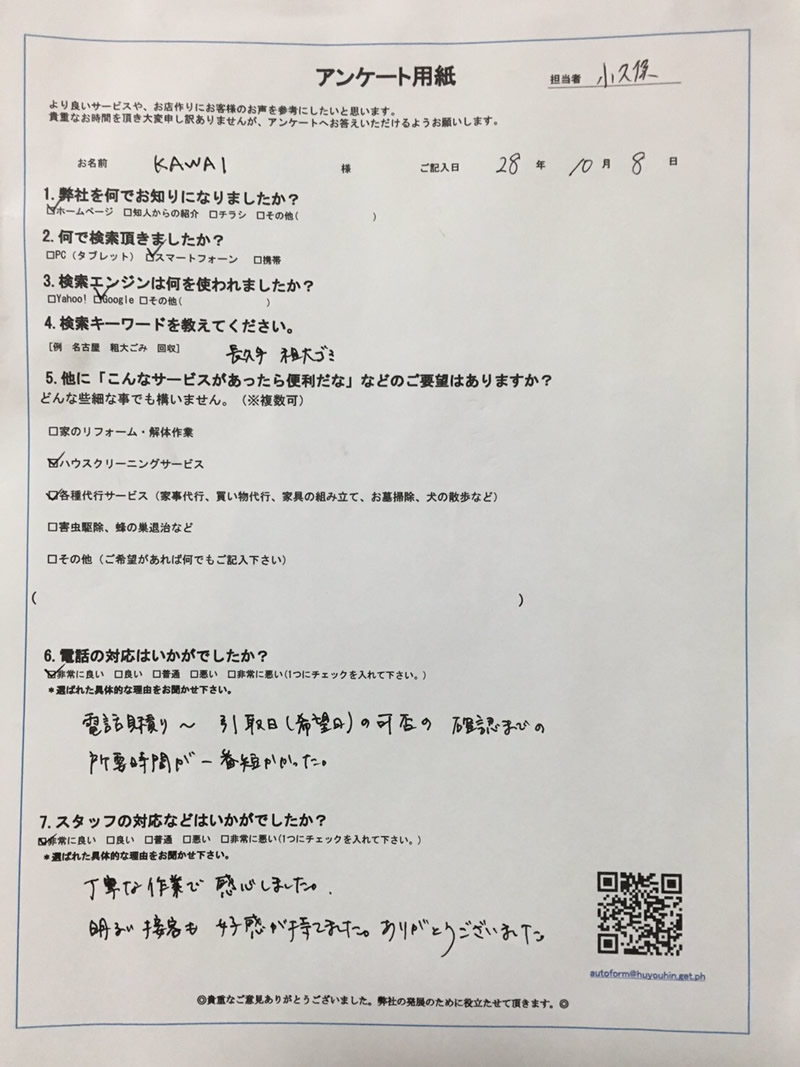 アンケート用紙
担当者 小久保
より良いサービスや、お店作りにお客様のお声を参考にしたいと思います。
貴重なお時間を頂き大変申し訳ありませんが、アンケートへお答えいただけるようお願いします。
お名前 KAWAI 様 ご記入日 28 年 10 月 8 日
1. 弊社を何でお知りになりましたか？
☑ホームページ □知人からの紹介 □チラシ □その他( )
2. 何で検索頂きましたか？
□PC（タブレット） ☑スマートフォーン □携帯
3. 検索エンジンは何を使われましたか？
□Yahoo! ☑Google □その他( )
4. 検索キーワードを教えてください。
[例 名古屋 粗大ごみ 回収] 長久手 粗大ゴミ
5. 他に「こんなサービスがあったら便利だな」などのご要望はありますか？
どんな些細な事でも構いません。（※複数可）
□家のリフォーム・解体作業
☑ハウスクリーニングサービス
☑各種代行サービス（家事代行、買い物代行、家具の組み立て、お墓掃除、犬の散歩など）
□害虫駆除、蜂の巣退治など
□その他（ご希望があれば何でもご記入下さい）
( )
6. 電話の対応はいかがでしたか？
☑非常に良い □良い □普通 □悪い □非常に悪い(1つにチェックを入れて下さい。)
*選ばれた具体的な理由をお聞かせ下さい。
電話見積り～ 引取日(希望日)の可否の 確認までの
所要時間が一番短かかった。
7. スタッフの対応などはいかがでしたか？
☑非常に良い □良い □普通 □悪い □非常に悪い(1つにチェックを入れて下さい。)
*選ばれた具体的な理由をお聞かせ下さい。
丁寧な作業で感心しました。
明るい接客も 好感が持てました。ありがとうございました
autoform@huyouhin.get.ph
◎貴重なご意見ありがとうございました。弊社の発展のために役立たせて頂きます。◎